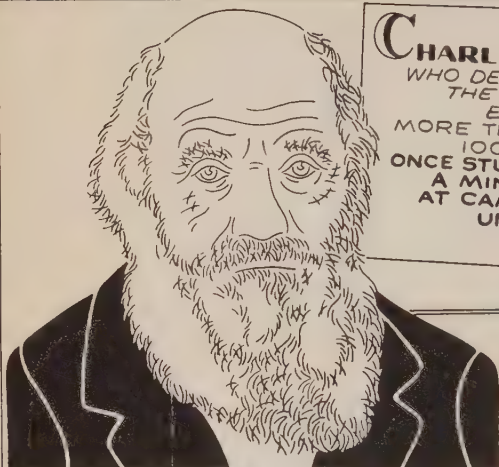 CHARL
WHO DE
THE
E
MORE T
100
ONCE STU
A MIN
AT CA
U